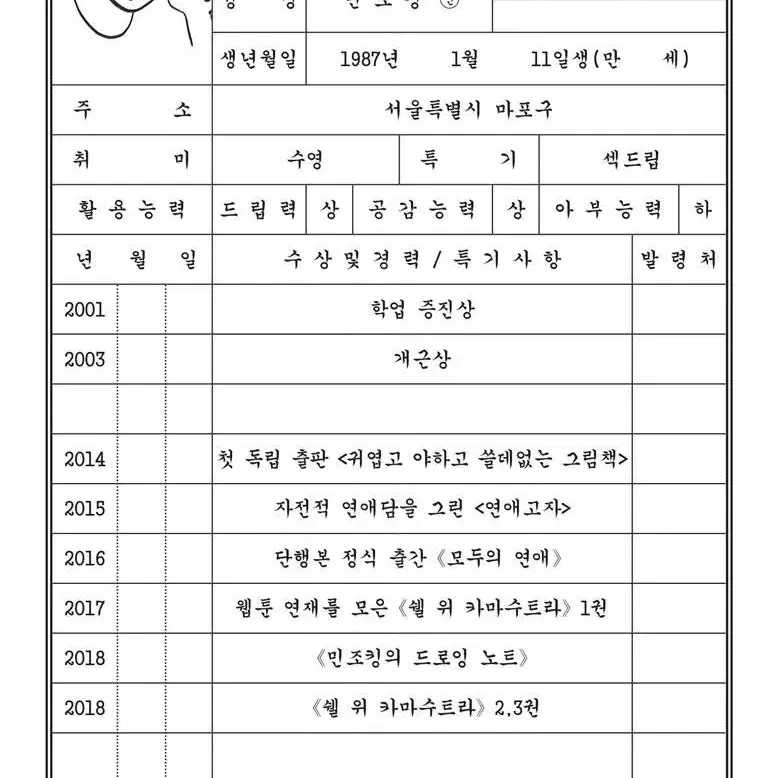 생년월일 1987년 1월 11일생(만 세)
주 소 서울특별시 마포구
취 미 수영 특 기 섹드립
활용능력 드립력 상 공감능력 상 아부능력 하
년 월 일 수상및경력/특기사항 발령처
2001 학업 증진상
2003 개근상
2014 첫 독립 출판 <귀엽고 야하고 쓸데없는 그림책>
2015 자전적 연애담을 그린 <연애고자>
2016 단행본 정식 출간 《모두의 연애》
2017 웹툰 연재를 모은 《쉘 위 카마수트라》 1권
2018 《민조킹의 드로잉 노트》
2018 《쉘 위 카마수트라》 2,3권